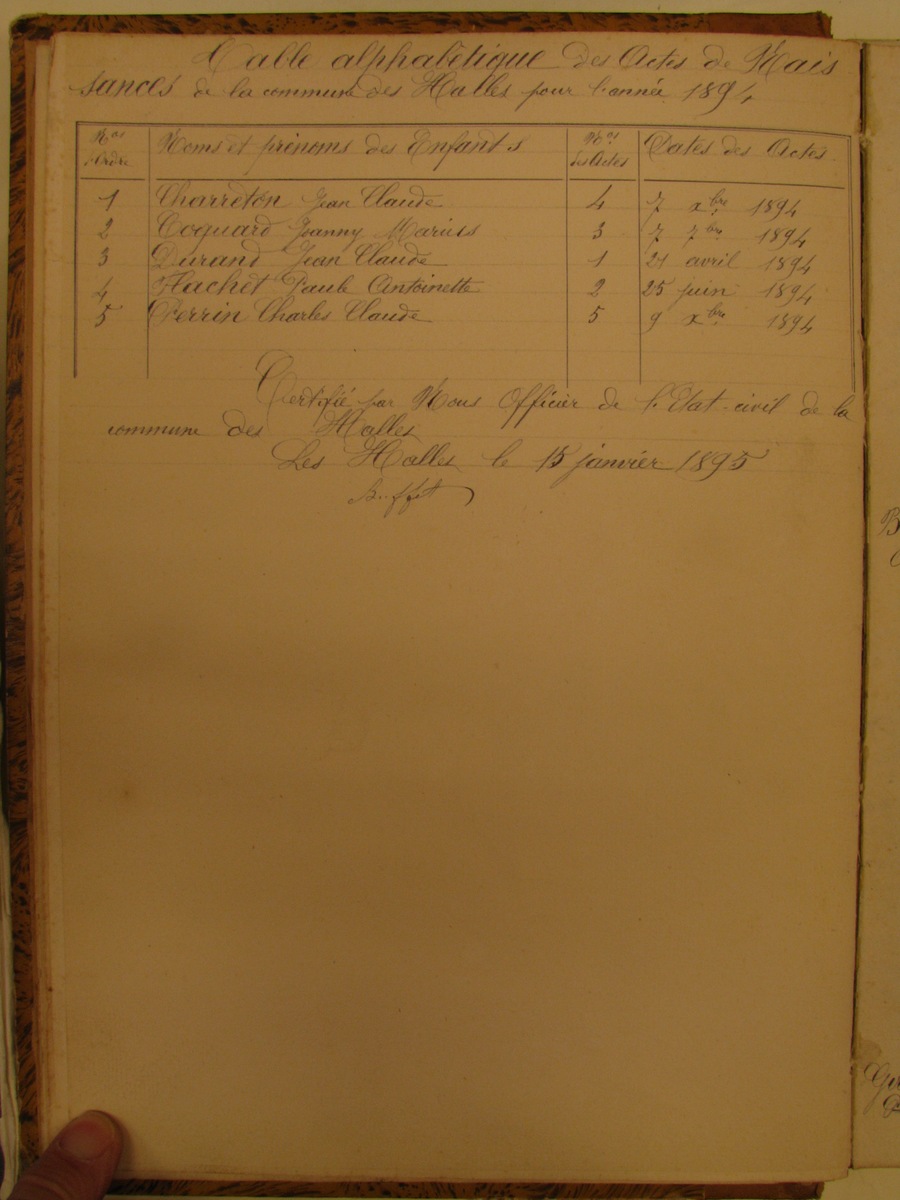 Table alphabétique des Actes de Nais
sances de la commune des Halles pour l'année 1894
Nos d'ordre Noms et prénoms des Enfants Nos des Actes Dates des Actes
1 Charreton Jean Claude 4 7 xbre 1894
2 Coquard Joanny Marius 3 7 7bre 1894
3 Durand Jean Claude 1 21 avril 1894
4 Flachet Paule Antoinette 2 25 juin 1894
5 Perrin Charles Claude 5 9 xbre 1894
Certifié par Nous Officier de l'Etat-civil de la
commune des Halles
Les Halles le 15 janvier 1895